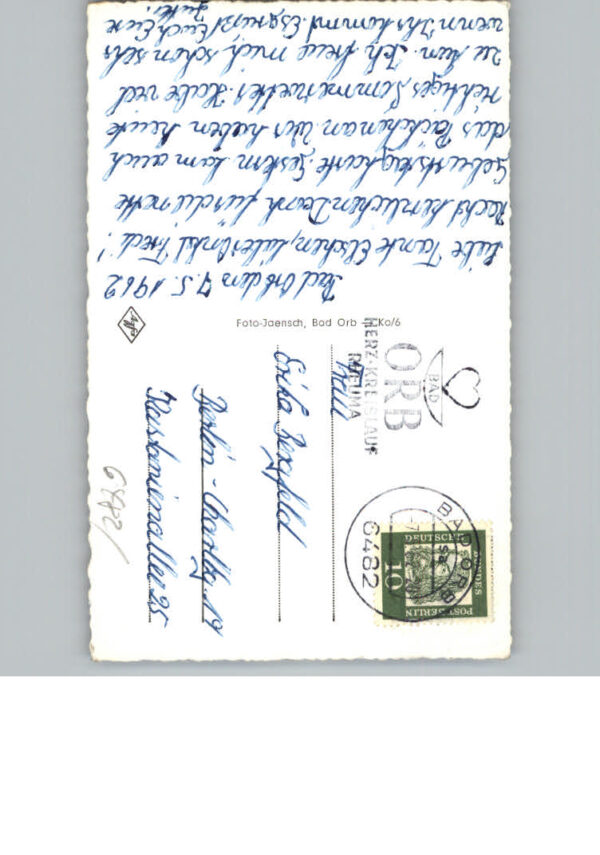 Bad Orb den 7.5.1962
Liebe Tante Elschen, lieber Onkel Fred!
Recht herzlichen Dank für die nette
Geburtstagskarte. Gestern kam auch
das Päckchen an. Wir haben heute
richtiges Sommerwetter. Habe viel
zu tun. Ich freue mich schon sehr
wenn Ihr kommt. Es grüßt Euch Eure
Foto-Jaensch, Bad Orb Ko/6
Agfa
BAD
ORB
HERZ-KREISLAUF
RHEUMA
Erika
Berlin-Charlbg. 19
Kastanienallee 25
BAD ORB
6482
DEUTSCHE
BUNDES
POST BERLIN
10